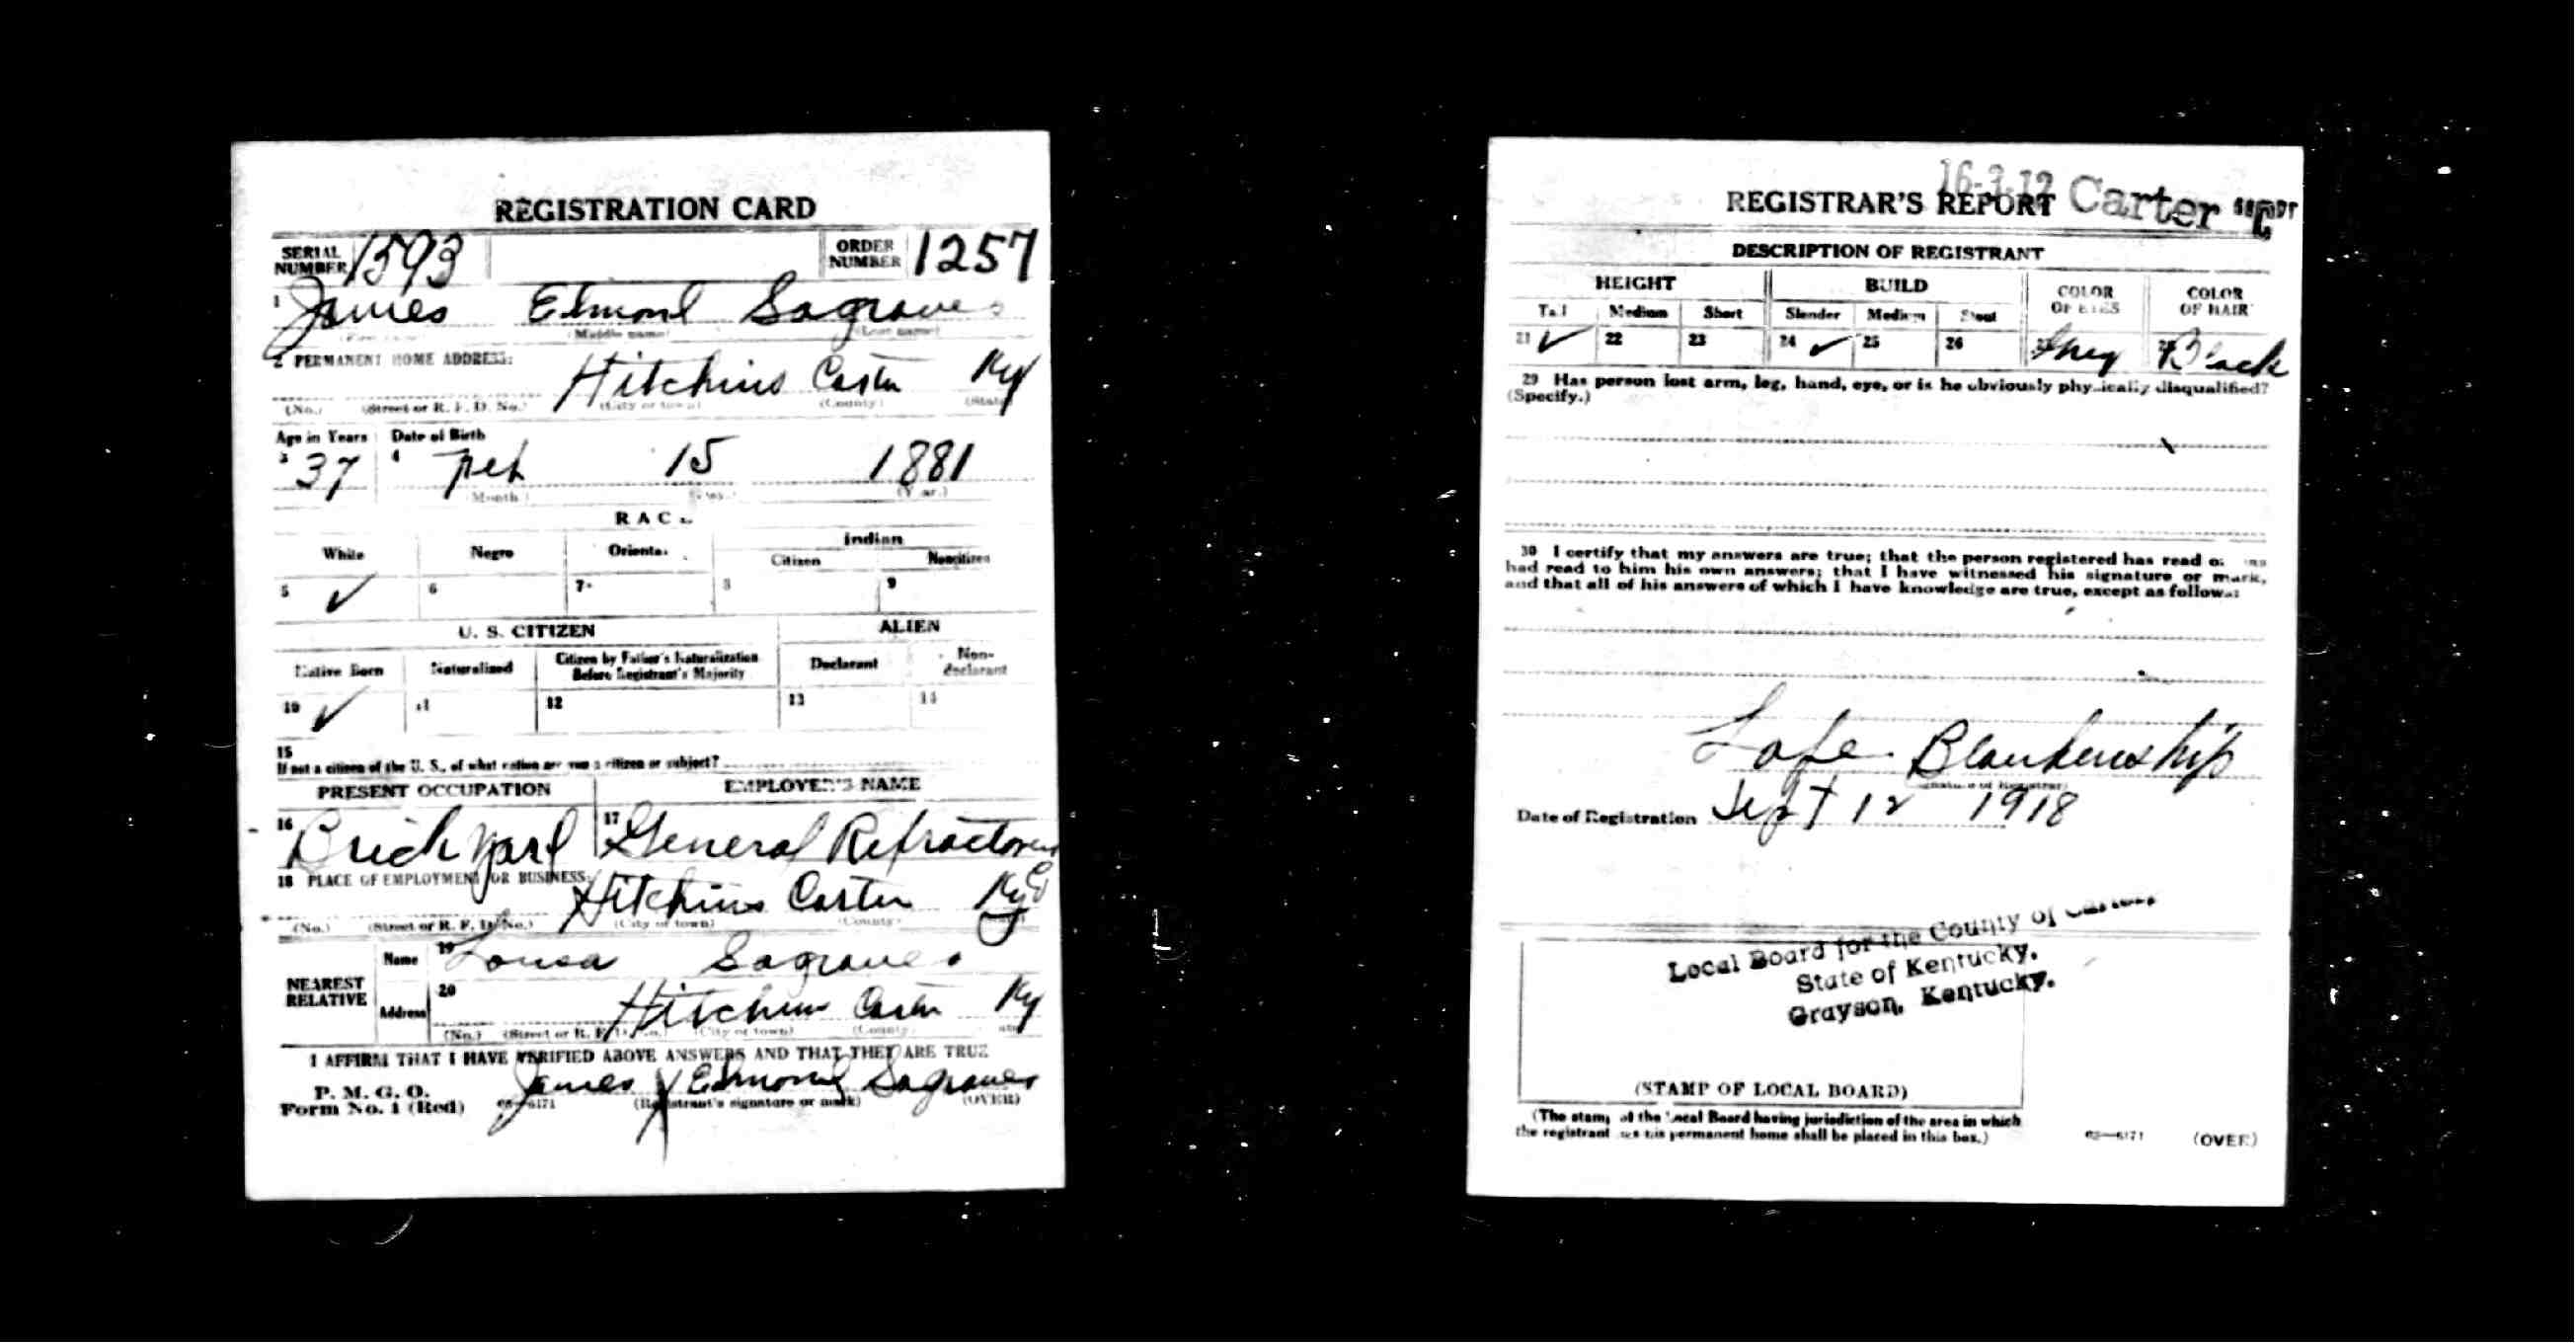 REGISTRATION CARD
SERIAL NUMBER 1593
ORDER NUMBER 1257
1 James Edmond Sagraves
(Middle name) (Last name)
2 PERMANENT HOME ADDRESS:
Hitchins Carter Ky
(No.) (Street or R. F. D. No.) (City or town) (County) (State)
Age in Years Date of Birth
3 37 4 Feb 15 1881
(Month.) (Day.) (Year.)
RACE
White Negro Oriental Indian
Citizen Noncitizen
5 ✓ 6 7 8 9
U. S. CITIZEN ALIEN
Native Born Naturalized Citizen by Father's Naturalization Before Registrant's Majority Declarant Non-declarant
10 ✓ 11 12 13 14
15
If not a citizen of the U. S., of what nation are you a citizen or subject?
PRESENT OCCUPATION EMPLOYER'S NAME
16 Brick Yard 17 General Refractories Co
18 PLACE OF EMPLOYMENT OR BUSINESS:
Hitchins Carter Ky
(No.) (Street or R. F. D. No.) (City or town) (County) (State)
NEAREST RELATIVE
Name 19 Lousa Sagraves
Address 20 Hitchins Carter Ky
(No.) (Street or R. F. D. No.) (City or town) (County) (State)
I AFFIRM THAT I HAVE VERIFIED ABOVE ANSWERS AND THAT THEY ARE TRUE
P. M. G. O.
Form No. 1 (Red) 03—6171
James Edmond Sagraves
(Registrant's signature or mark) (OVER)
REGISTRAR'S REPORT Carter
DESCRIPTION OF REGISTRANT
HEIGHT BUILD COLOR OF EYES COLOR OF HAIR
Tall Medium Short Slender Medium Stout
21 ✓ 22 23 24 ✓ 25 26 Grey Black
29 Has person lost arm, leg, hand, eye, or is he obviously physically disqualified?
(Specify.)
30 I certify that my answers are true; that the person registered has read or has
had read to him his own answers; that I have witnessed his signature or mark,
and that all of his answers of which I have knowledge are true, except as follows:
Lafe Blankenship
(Signature of Registrar)
Date of Registration Sept 12 1918
Local Board for the County of Carter,
State of Kentucky,
Grayson, Kentucky.
(STAMP OF LOCAL BOARD)
(The stamp of the Local Board having jurisdiction of the area in which
the registrant has his permanent home shall be placed in this box.)
03—6171 (OVER)